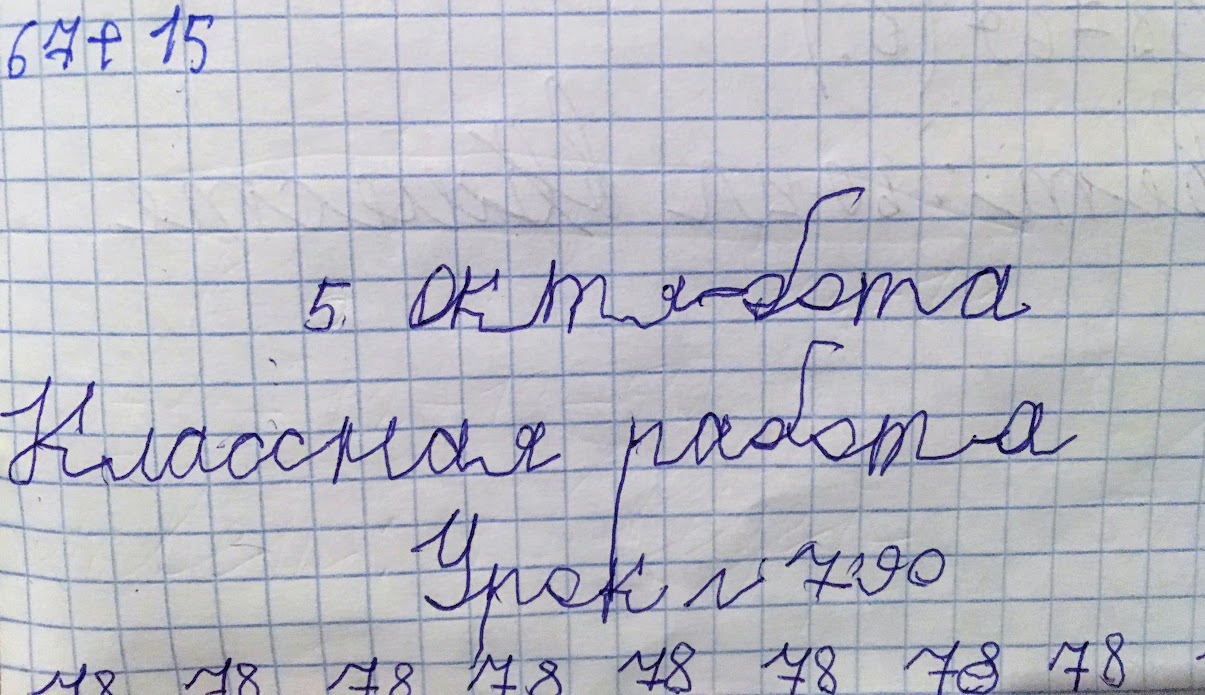 67+ 15
5. Октя-бота
Классная работа
Урок
78 78 78 78 78 78 78 78